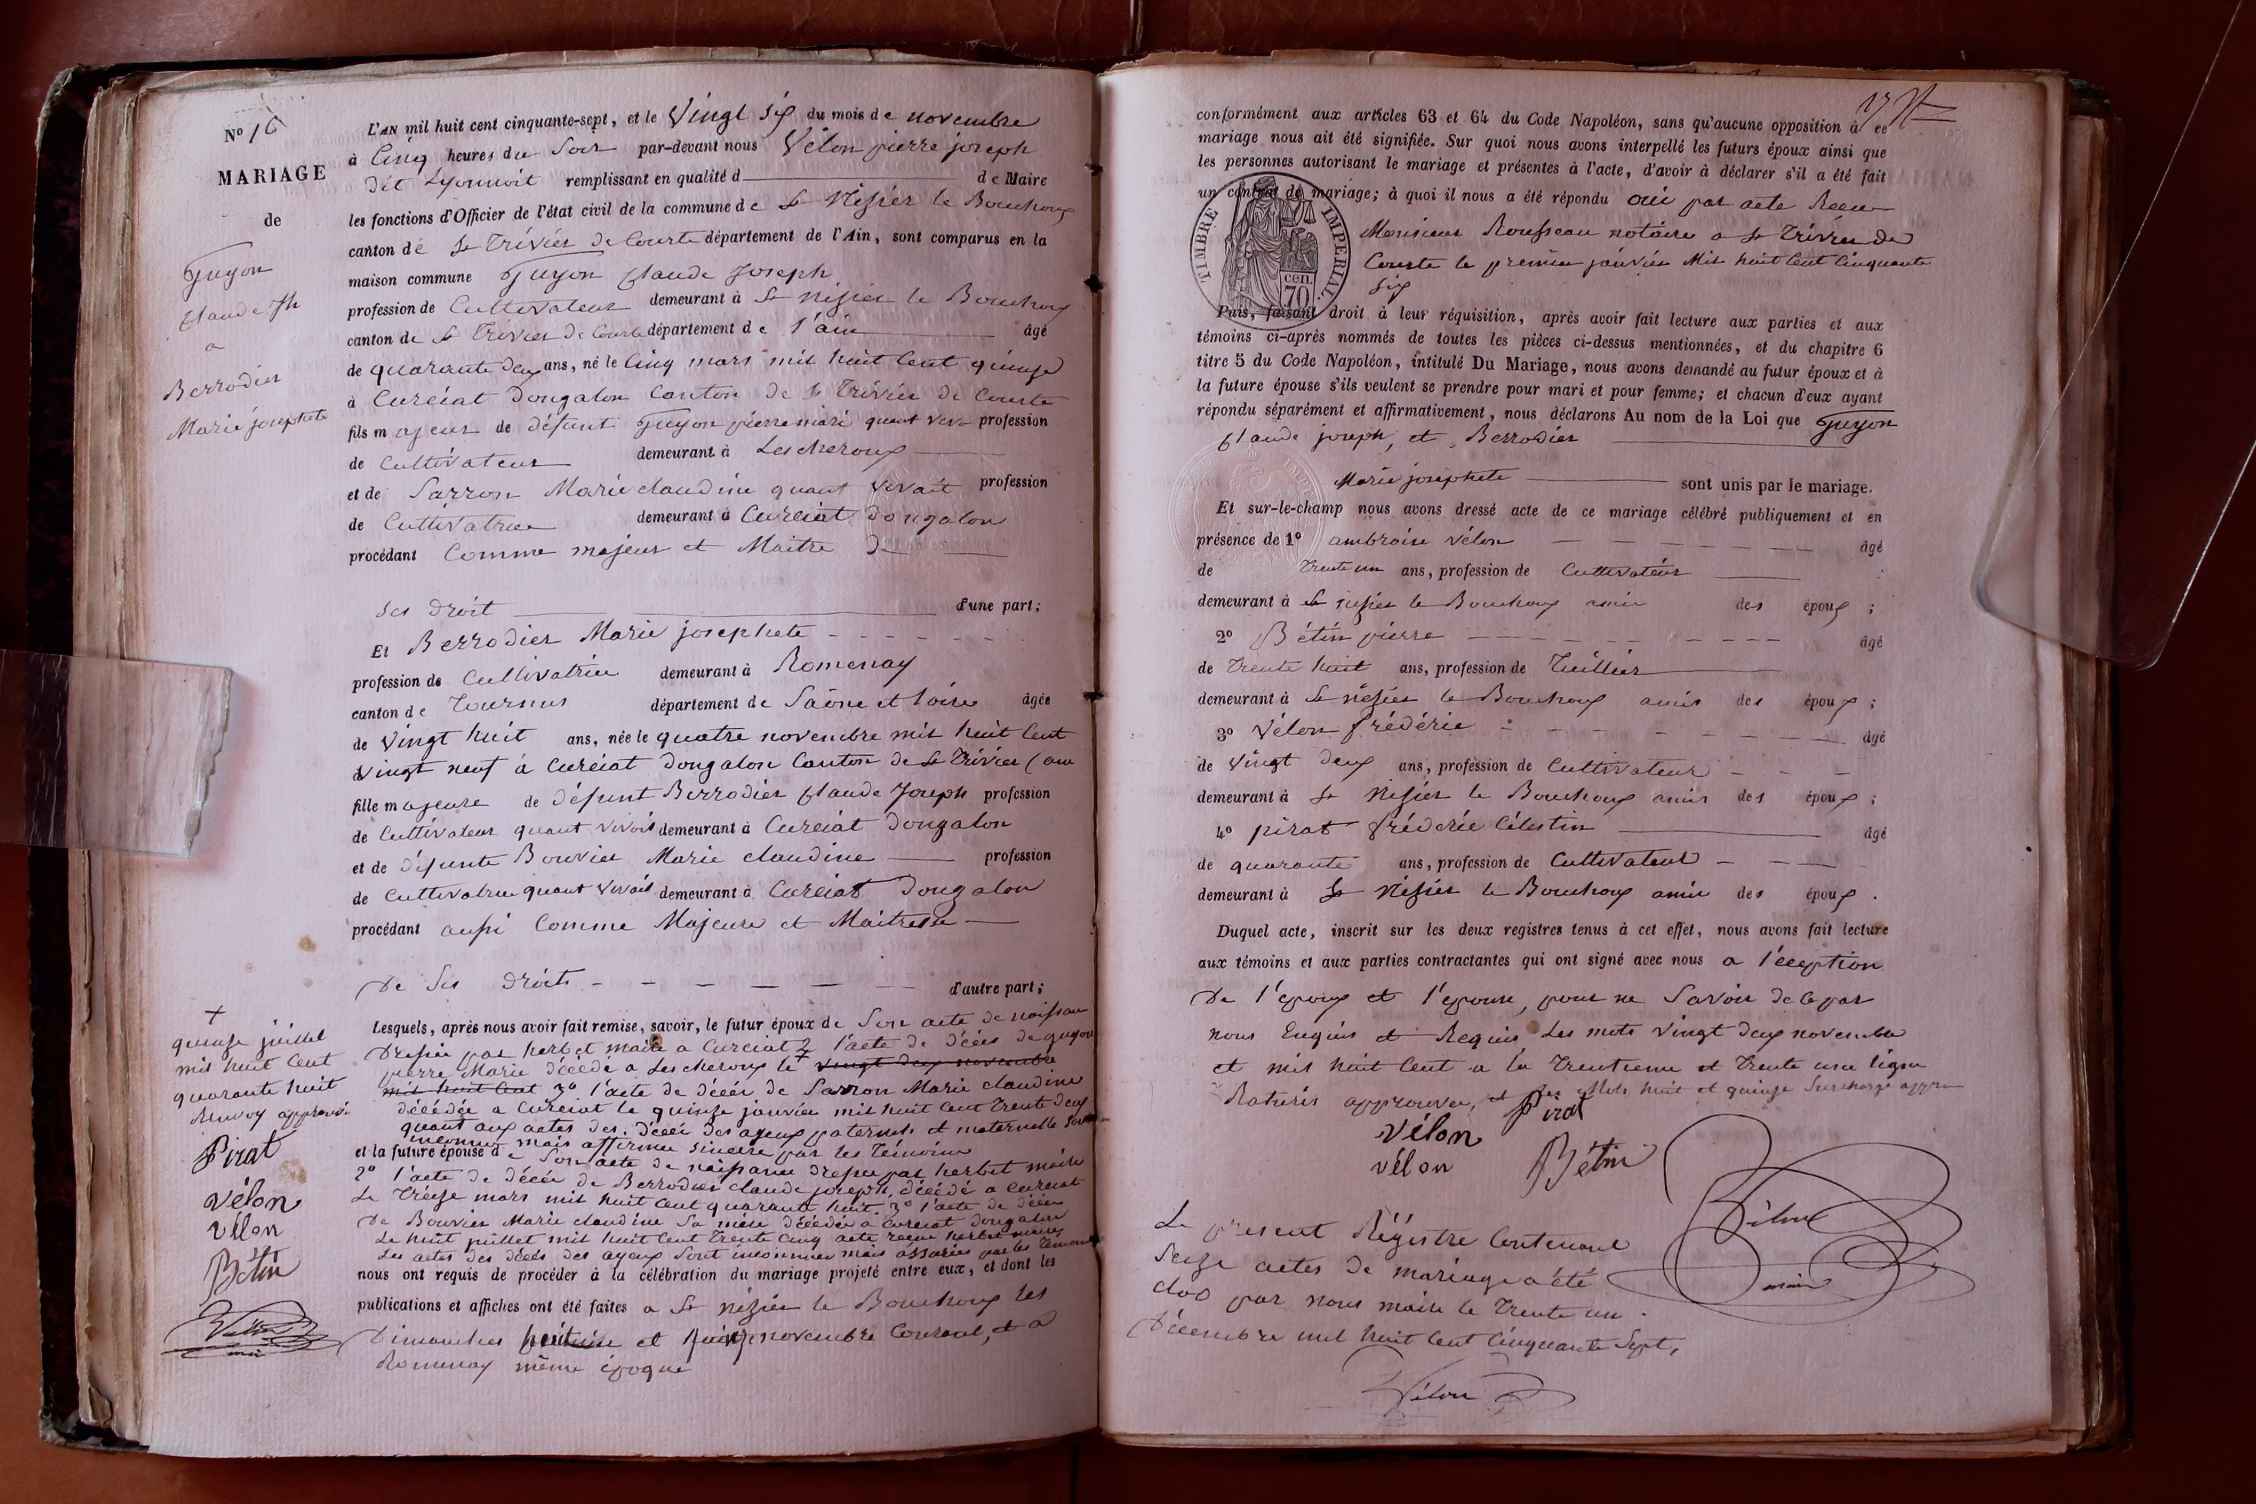 N° 16
MARIAGE
de
Guyon
Claude Jh
a
Berrodier
Marie josephete
L'AN mil huit cent cinquante-sept, et le Vingt Six du mois de novembre
à Cinq heures du Soir par-devant nous Vélon pierre joseph
dét Lyonnoit remplissant en qualité d de Maire
les fonctions d'Officier de l'état civil de la commune de St Nisier le Bouchoux
canton de St Trivier de Courte département de l'Ain, sont comparus en la
maison commune Guyon Claude Joseph
profession de Cultivateur demeurant à St nisier le Bouchoux
canton de St Trivier de Courte département de l'ain âgé
de quarante deux ans, né le Cinq mars mil huit Cent quinze
à Curciat Dongalon Canton de St Trivier de Courte
fils majeur de défunt Guyon pierre marie quant viv profession
de Cultivateur demeurant à Lescheroux
et de Sarron Marie claudine quant vivait profession
de Cultivatrice demeurant à Curciat dongalon
procédant Comme majeur et Maitre De
ses droit d'une part;
Et Berrodier Marie josephete
profession de Cultivatrice demeurant à Romenay
canton de Tournus département de Saône et loire âgée
de Vingt huit ans, née le quatre novembre mil huit Cent
Vingt neuf à Curciat Dongalon Canton de St Trivier (ain
fille majeure de défunt Berrodier Claude Joseph profession
de Cultivateur quant vivoit demeurant à Curciat Dongalon
et de défunte Bouvier Marie claudine profession
de Cultivatrice quant vivait demeurant à Curciat Dongalon
procédant aussi Comme Majeure et Maitresse
De Ses droits d'autre part;
Lesquels, après nous avoir fait remise, savoir, le futur époux de Son acte de naissan
Dressée par herbet maire a Curciat 2° l'acte de décès de guyon
pierre Marie décédé a Lescheroux le vingt deux novembre
mil huit Cent 3° l'acte de décès de Sarron Marie claudine
décédée a Curciat le quinze janvier mil huit cent trente deux
quant aux actes des décès des ayeux paternels et maternelle sont
inconnus mais affirmée sincère par les témoins
et la future épouse de Son acte de naissance dressée par herbet maire
2° l'acte de décès de Berrodier claude joseph, décédé a Curciat
Le Treize mars mil huit Cent quarante huit. 3° l'acte de décès
De Bouvier Marie claudine Sa mère décédée a Curciat dongalon
Le huit juillet mil huit Cent Trente Cinq acte reçue herbet maire
Les actes des décès des ayeux Sont inconnues mais assurées par les Témoins
nous ont requis de procéder à la célébration du mariage projeté entre eux, et dont les
publications et affiches ont été faites a St nizier le Bouchoux les
Dimanches huit et quinze novembre Courant, et a
Romenay même époque
+
quinze juillet
mil huit Cent
quarante huit
Renvoy approuvé
Pirat
vélon
vélon
Bétin
Vélon
maire
conformément aux articles 63 et 64 du Code Napoléon, sans qu'aucune opposition à ce
mariage nous ait été signifiée. Sur quoi nous avons interpellé les futurs époux ainsi que
les personnes autorisant le mariage et présentes à l'acte, d'avoir à déclarer s'il a été fait
un contrat de mariage; à quoi il nous a été répondu oui par acte Recu
Monsieur Rousseau notaire a St Trivier de
Courte le premier janvier Mil huit Cent Cinquante
Six
TIMBRE IMPERIAL
70 cen.
Puis, faisant droit à leur réquisition, après avoir fait lecture aux parties et aux
témoins ci-après nommés de toutes les pièces ci-dessus mentionnées, et du chapitre 6
titre 5 du Code Napoléon, intitulé Du Mariage, nous avons demandé au futur époux et à
la future épouse s'ils veulent se prendre pour mari et pour femme; et chacun d'eux ayant
répondu séparément et affirmativement, nous déclarons Au nom de la Loi que Guyon
Claude joseph, et Berrodier
Marie josephete sont unis par le mariage.
Et sur-le-champ nous avons dressé acte de ce mariage célébré publiquement et en
présence de 1° ambroise vélon âgé
de Trente un ans, profession de Cultivateur
demeurant à St nisier le Bouchoux amis des époux ;
2° Bétin pierre âgé
de Trente huit ans, profession de Tuillier
demeurant à St nisier le Bouchoux amis des époux ;
3° Vélon frédéric âgé
de Vingt deux ans, profession de Cultivateur
demeurant à St Nisier le Bouchoux amis des époux ;
4° pirat fréderic Célestin âgé
de quarante ans, profession de Cultivateur
demeurant à St Nisier le Bouchoux amis des époux .
Duquel acte, inscrit sur les deux registres tenus à cet effet, nous avons fait lecture
aux témoins et aux parties contractantes qui ont signé avec nous a l'éception
De l'époux et l'épouse, pour ne Savoir de ce par
nous Enquis et Requis Les mots vingt deux novembre
et mil huit Cent a la trentieme et trente une ligne
Raturés approuvée, et les Mots huit et quinze Surchargé appr
Pirat
vélon
vélon
Bétin
Vélon
maire
Le present Régistre Contenant
Seize actes de mariage a été
clos par nous maire le Trente un
Décembre mil huit Cent Cinquante Sept,
Vélon